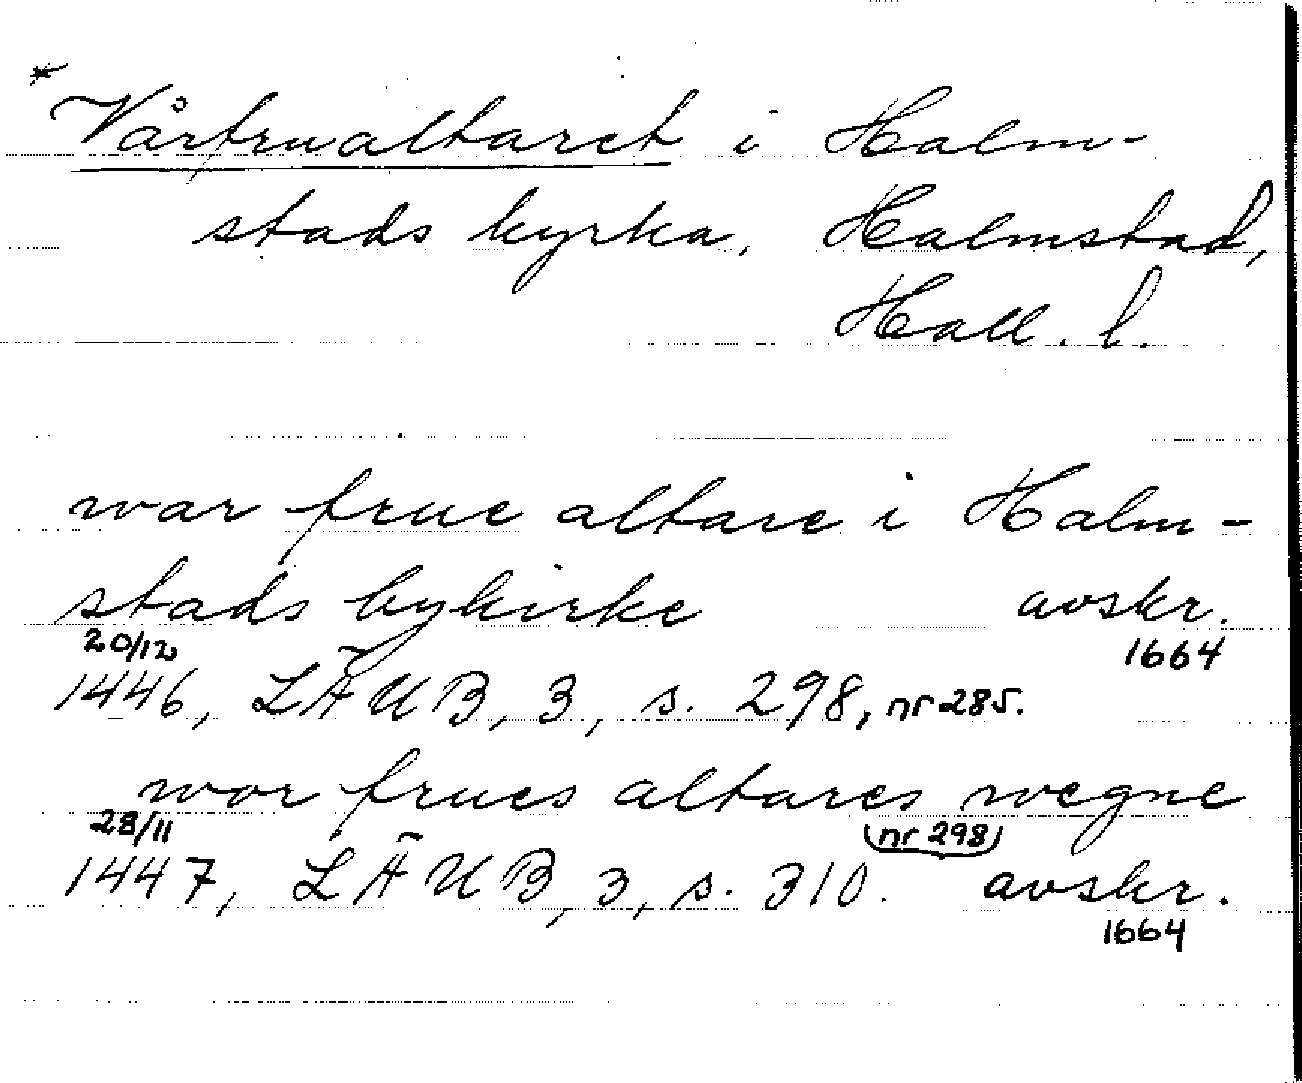 * Vårfrualtaret i Halm-
stads kyrka, Halmstad,
Hall. l.
war frue altare i Halm-
stads bykirke avskr.
20/12 1664
1446, LÄUB, 3, s. 298, nr 285.
wor frues altares wegne
28/11 (nr 298)
1447, LÄUB, 3, s. 310. avskr.
1664